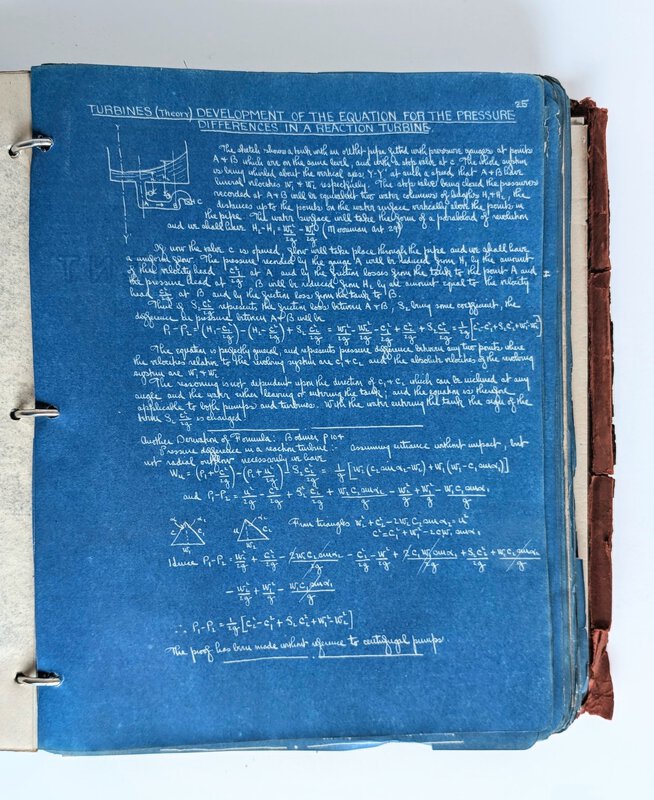 25
TURBINES (Theory) DEVELOPMENT OF THE EQUATION FOR THE PRESSURE
DIFFERENCES IN A REACTION TURBINE
The sketch shows a tank with an outlet pipe fitted with pressure gauges at points
A + B which are on the same level, and with a stop valve at C. The whole system
is being whirled about the vertical axis Y-Y' at such a speed that A + B have
lineal velocities W₁ + W₂ respectively. The stop valve being closed the pressures
recorded at A + B will be equivalent two water columns of heights H₁ + H₂, the
distances up to the points on the water surface vertically above the points in
the pipe. The water surface will take the form of a paraboloid of revolution
and we shall have H₁ - H₂ = W₁²/2g - W₂²/2g (Merriman Art 29)
If now the valve C is opened, flow will take place through the pipe and we shall have
a uniform flow. The pressure recorded by the gauge A will be reduced from H₁ by the amount
of the velocity head C₁²/2g at A and by the friction losses from the tank to the point A and
the pressure head at B will be reduced from H₂ by an amount equal to the velocity
head C₂²/2g at B and by the friction loss from the tank to B.
Then if S₂ C₂²/2g represents the friction loss between A + B, S₂ being some coefficient, the
difference in pressure between A + B will be
P₁-P₂ = (H₁-C₁²/2g) - (H₂-C₂²/2g) + S₂ C₂²/2g = W₁²/2g - W₂²/2g - C₁²/2g + C₂²/2g + S₂ C₂²/2g = 1/2g [C₂²-C₁²+S₂C₂²+W₁²-W₂²]
The equation is perfectly general, and represents pressure difference between any two points where
the velocities relative to the moving system are C₁ + C₂ and the absolute velocities of the revolving
system are W₁ + W₂.
The reasoning is not dependent upon the direction of C₁ + C₂ which can be inclined at any
angle and the water either leaving or entering the tank; and the equation is therefore
applicable to both pumps and turbines. With the water entering the tank the sign of the
term S₂ C₂²/2g is changed.
Another Derivation of Formula: Bodmer p 104
Pressure difference in a reaction turbine:- assuming entrance without impact, but
not radial outflow necessarily we have
and P₁-P₂ = u²/2g - C²/2g + S₂ C₂²/2g + W₂C₂cosα₂/g - W₂²/g + W₁²/g - W₁C₁cosα₁/g
From triangles W₂²+C₂²-2W₂C₂cosα₂ = u²
C² = C₁²+W₁²-2C₁W₁cosα₁
Hence P₁-P₂ = W₂²/2g + C₂²/2g - 2W₂C₂cosα₂/2g - C₁²/2g - W₁²/2g + 2C₁W₁cosα₁/2g + S₂C₂²/2g + W₂C₂cosα₂/g
- W₂²/g + W₁²/g - W₁C₁cosα₁/g
∴ P₁-P₂ = 1/2g [C₂²-C₁²+S₂C₂²+W₁²-W₂²]
The proof has been made without reference to centrifugal pumps.